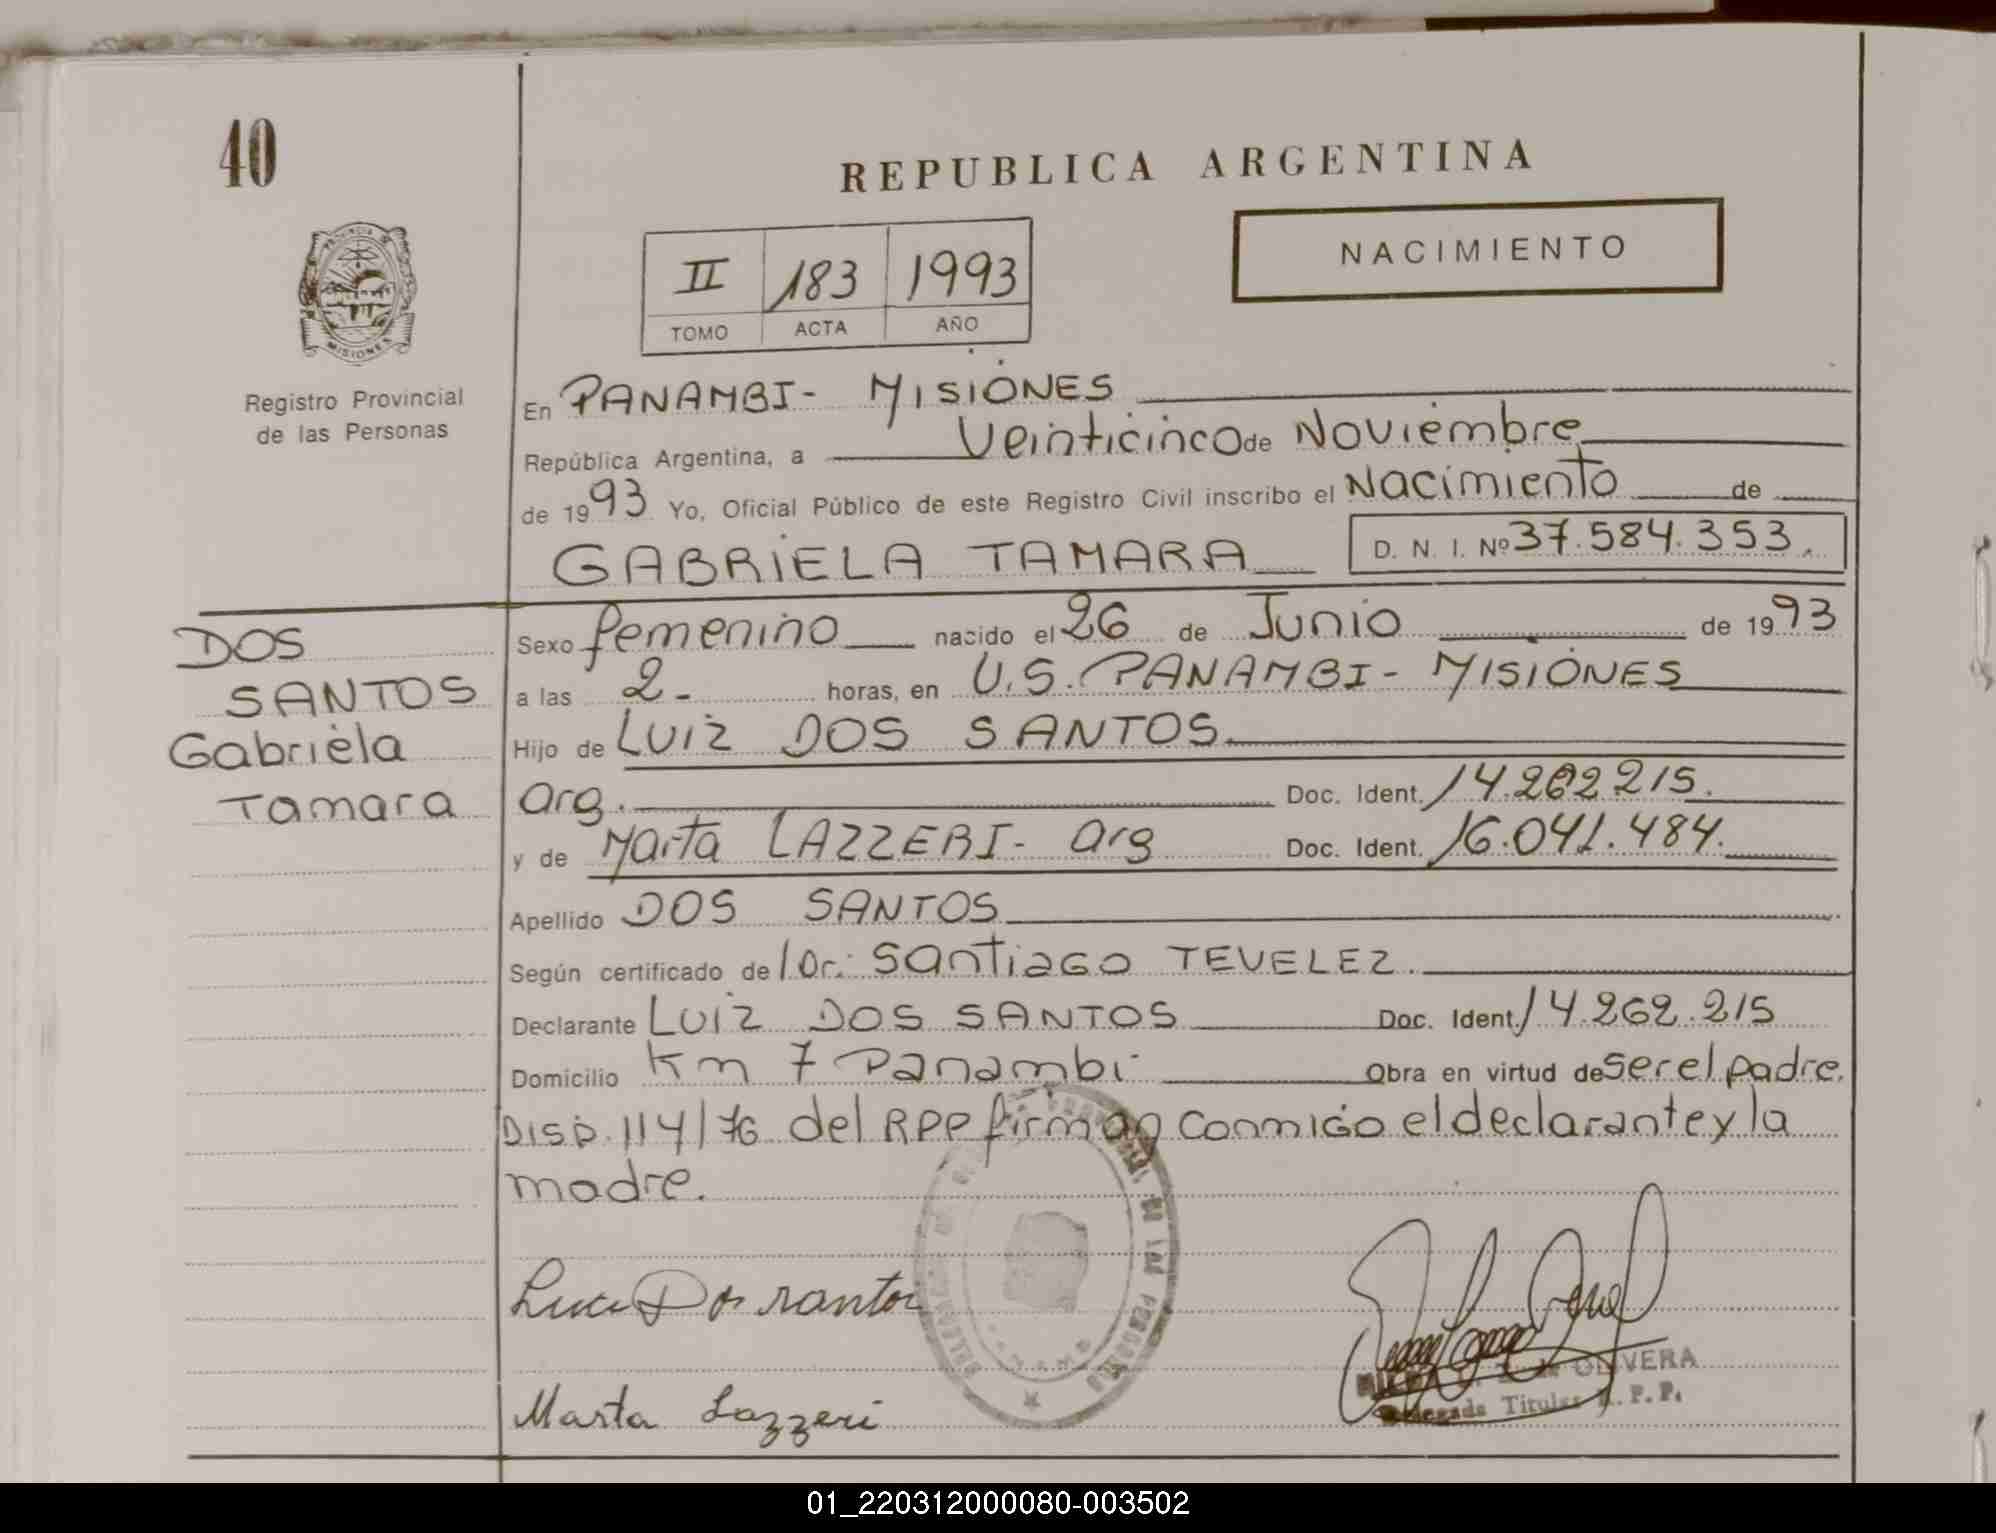 40
REPUBLICA ARGENTINA
NACIMIENTO
II 183 1993
TOMO ACTA AÑO
PROVINCIA DE
MISIONES
Registro Provincial
de las Personas
En PANAMBI - MISIONES
República Argentina, a Veinticinco de Noviembre
de 1993 Yo, Oficial Público de este Registro Civil inscribo el Nacimiento de
GABRIELA TAMARA D. N. I. Nº 37.584.353.
DOS
SANTOS
Gabriela
Tamara
Sexo femenino nacido el 26 de Junio de 1993
a las 2- horas, en U.S. PANAMBI - MISIONES
Hijo de LUIZ DOS SANTOS.
arg. Doc. Ident. 14.262.215.
y de Marta LAZZERI - arg Doc. Ident. 16.041.484.
Apellido DOS SANTOS
Según certificado de l Dr. Santiago TEVELEZ.
Declarante LUIZ DOS SANTOS Doc. Ident. 14.262.215
Domicilio Km 7 Panambi Obra en virtud de ser el padre.
Disp. 114/76 del RPP firman conmigo el declarante y la
madre.
DE LAS PERSONAS
Dos santos
Marta Lazzeri
OLIVERA
Delegada Titular R. P. P.
01_220312000080-003502